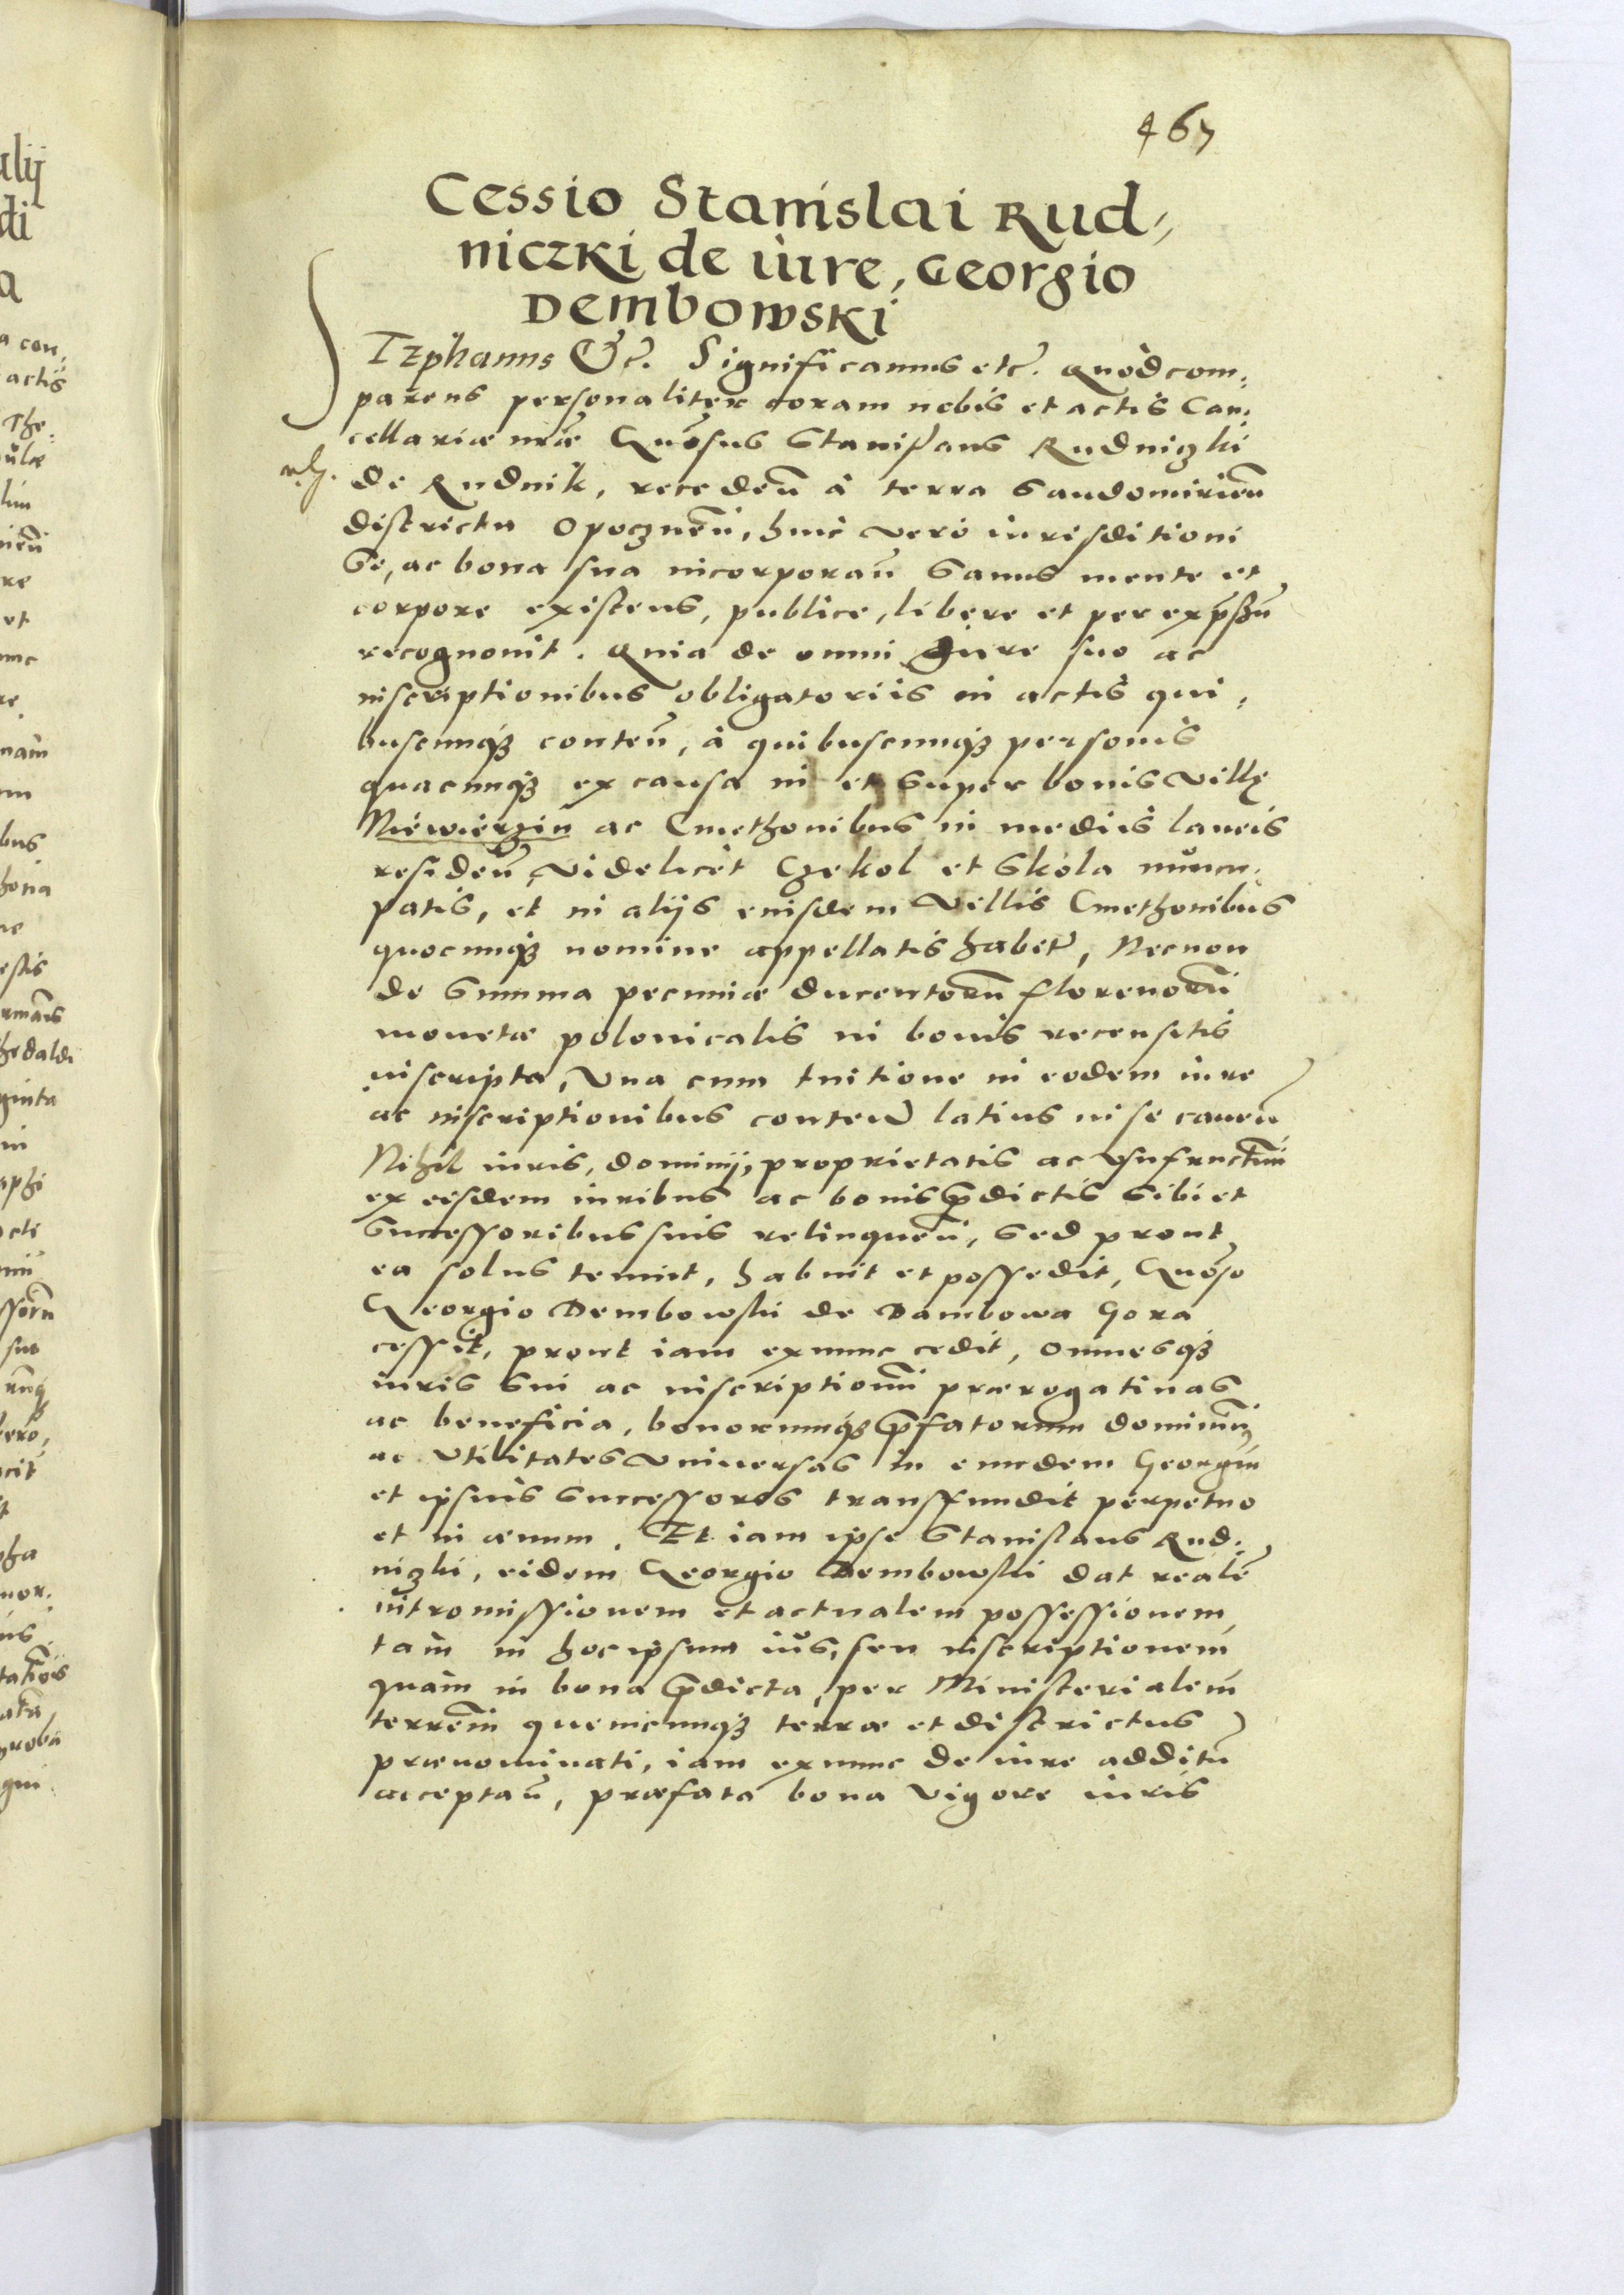 467
Cessio Stanislai Rud,,
niczki de iure, Georgio
Dembowski
STEphanus &c. Significamus etc. Quòd com,
parens personaliter coram nobis et actis Can,
cellariæ nræ Gnosus Stanislaus Rudniczki
de Rudnik, receden à terra Sandomirien
districtu Opocznen, huic verò iurisditioni
se, ac bona sua incorporan Sanus mente et
corpore existens, publice, libere et per expssu
recognouit. Quia de omni Iure suo ac
inscriptionibus obligatoriis in actis qui,
buscunq3 conten, à quibuscunq3 personis
quacunq3 ex causa in et super bonis villę
Niewierzin ac Cmethonibus in mediis laneis
residen, videlicet Czekol et Skola nuncu,
patis, et in alijs eiusdem Villis Cmethonibus
quocunq3 nomine appellatis habet, Necnon
de Summa pecuniæ ducentorum florenorum
monetæ polonicalis in bonis recensitis
inscripta, Vna cum tuitione in eodem iure
ac inscriptionibus conten latius in se cauen
Nihil iuris, dominij, proprietatis ac vsufructuum
ex eisdem iuribus ac bonis pdictis sibi et
Successoribus suis relinquen, sed prout
ea solus tenuit, habuit et possedit, Gnoso
Georgio Dembowski de Dambowa Gora
cessit, prout iam exnunc cedit, omnesq3
iuris sui ac inscriptionum prærogatiuas
ac beneficia, bonorumq3 pfatorum dominium
ac Vtilitates Vniuersas in eundem Georgiu
et ipsius Successores transfundit perpetuo
et in æuum. Et iam ipse Stanislaus Rud,
niczki, eidem Georgio Dembowski dat realem
intromissionem et actualem possessionem,
tam in hoc ipsum ius, seu inscriptionem
quàm in bona pdicta, per Ministerialem
terrem quemcunq3 terræ et districtus
prænominati, iam exnunc de iure additu
acceptan, præfata bona vigore iuris